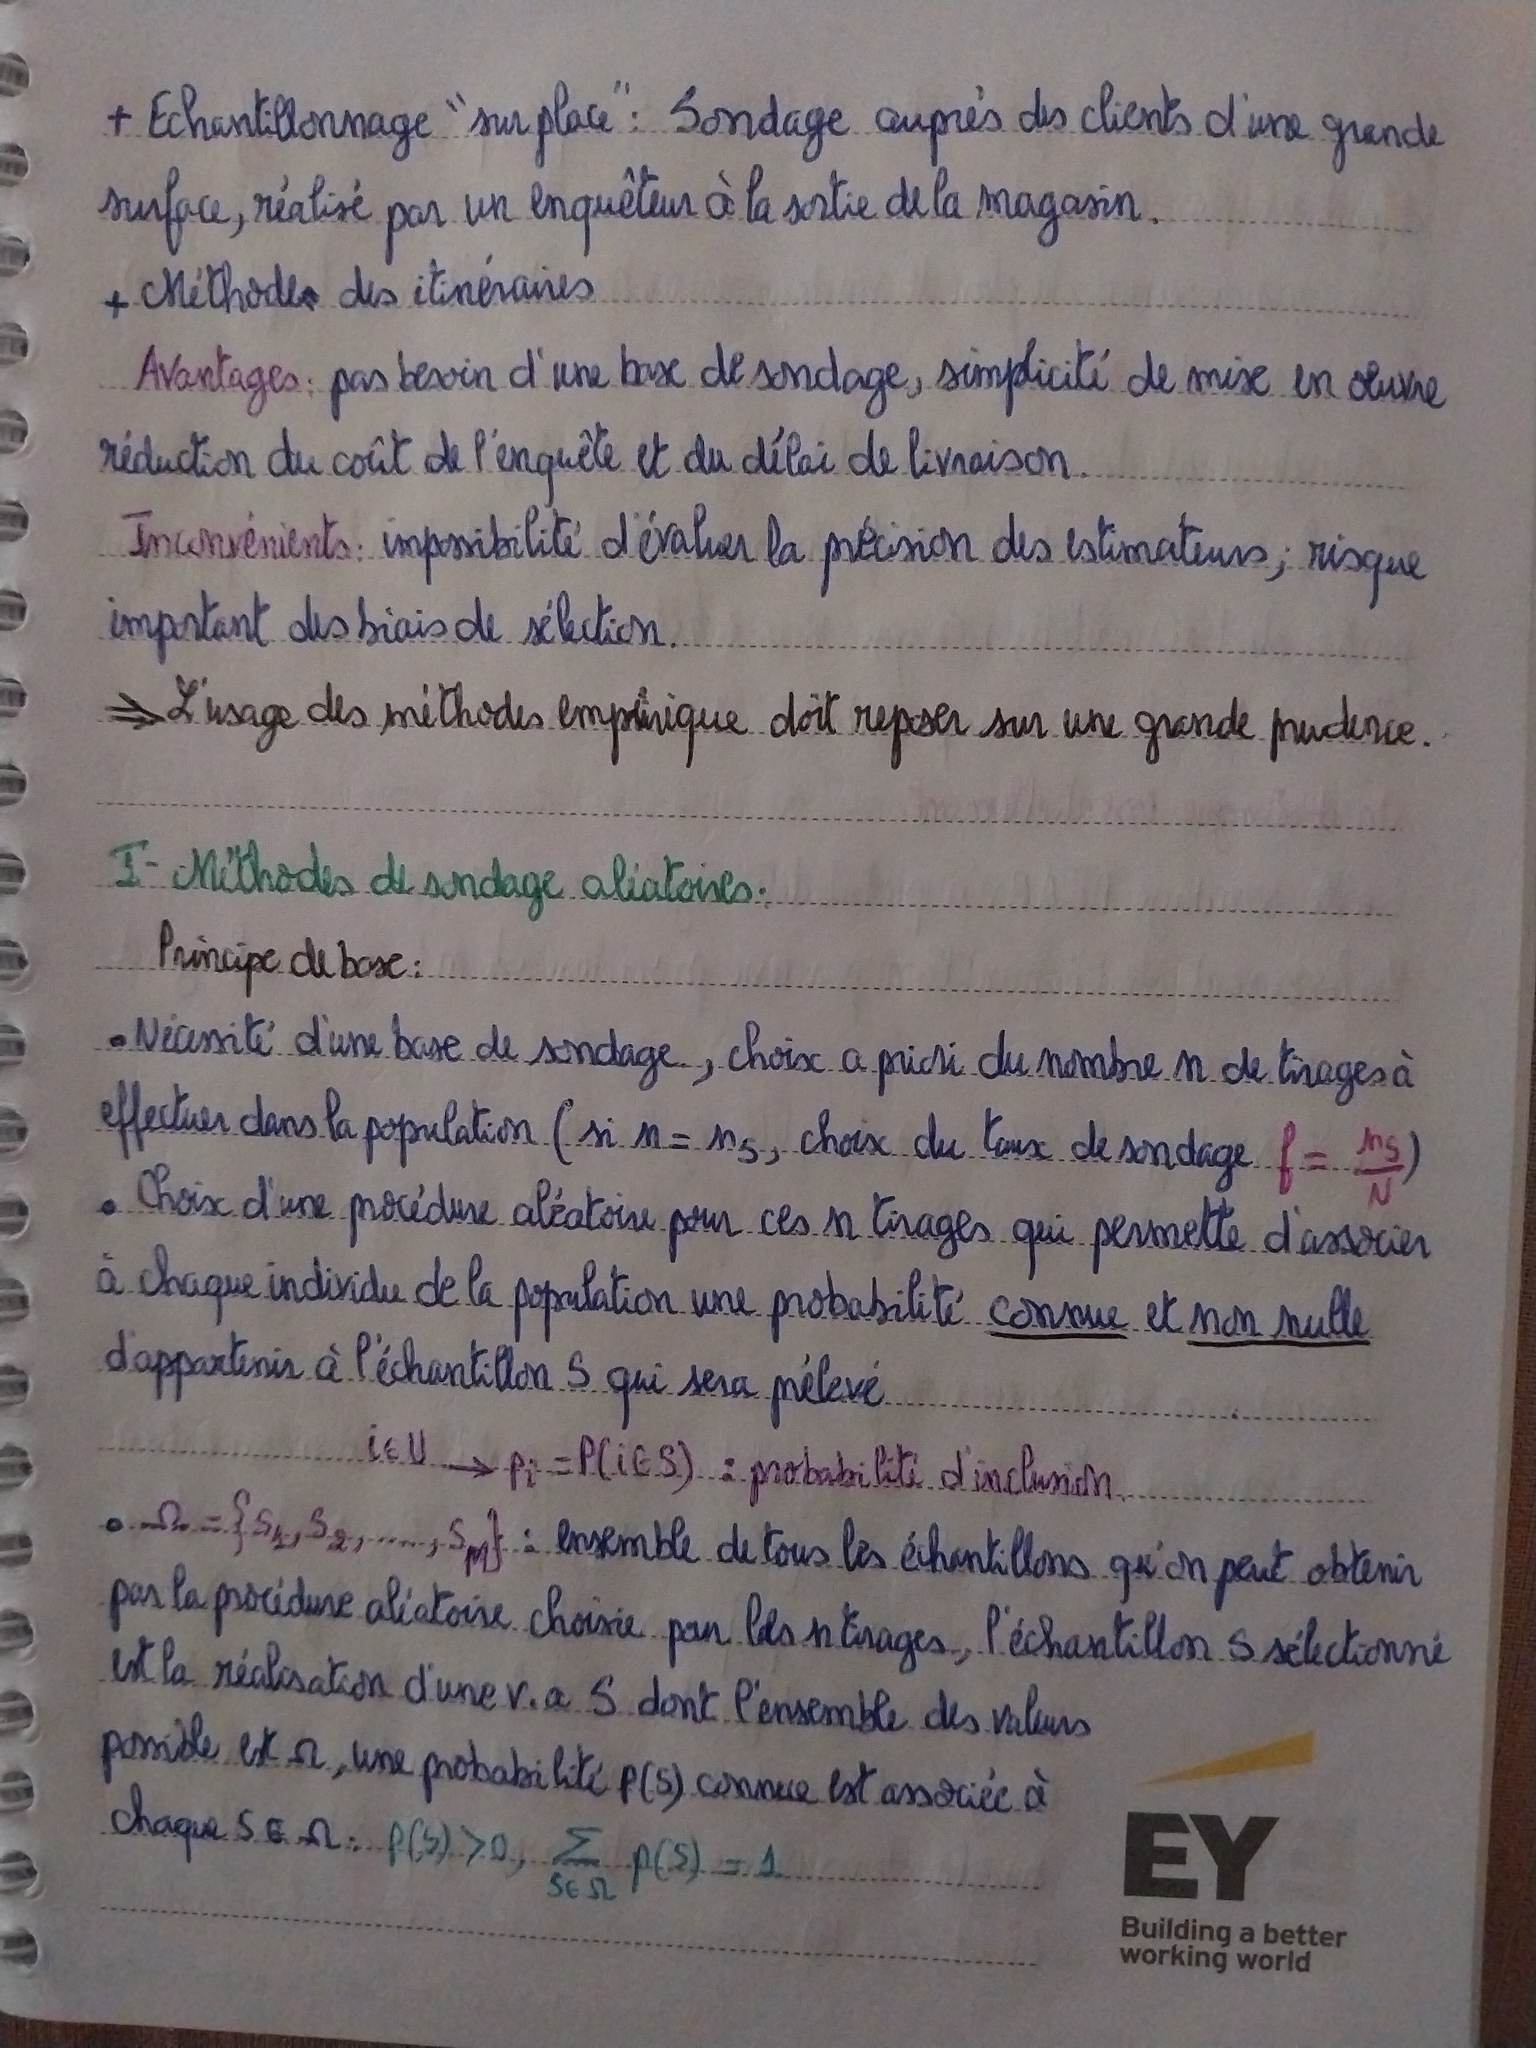 + Echantillonnage "sur place" : Sondage auprès des clients d'une grande
surface, réalisé par un enquêteur à la sortie de la magasin.
+ Méthode des itinéraires
Avantages : pas besoin d'une base de sondage, simplicité de mise en oeuvre
réduction du coût de l'enquête et du délai de livraison.
Inconvénients : impossibilité d'évaluer la précision des estimateurs ; risque
important des biais de sélection.
⇒ L'usage des méthodes empirique doit reposer sur une grande prudence.
I- Méthodes de sondage aléatoires :
Principe de base :
• Nécessité d'une base de sondage, choix a priori du nombre n de tirages à
effectuer dans la population ( si n = n_S, choix du taux de sondage f = n_S/N )
• Choix d'une procédure aléatoire pour ces n tirages qui permette d'associer
à chaque individu de la population une probabilité connue et non nulle
d'appartenir à l'échantillon S qui sera prélevé
i ∈ U → p_i = P(i ∈ S) : probabilité d'inclusion.
• Ω = {S_1, S_2, ...., S_M} : ensemble de tous les échantillons qu'on peut obtenir
par la procédure aléatoire choisie pour les n tirages, l'échantillon S sélectionné
est la réalisation d'une v.a S dont l'ensemble des valeurs
possible est Ω, une probabilité p(S) connue est associée à
chaque S ∈ Ω : p(S) > 0, Σ_{S∈Ω} p(S) = 1
EY
Building a better
working world